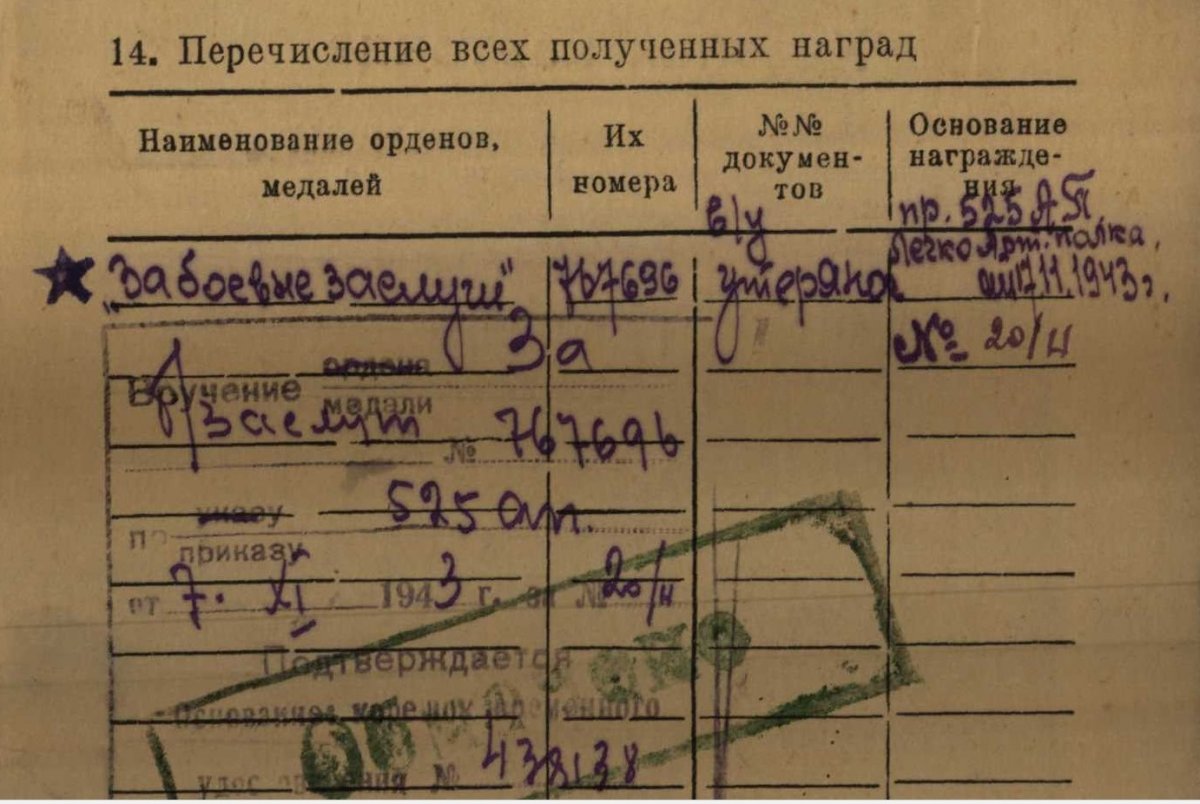 14. Перечисление всех полученных наград
Наименование орденов,
медалей
Их
номера
№№
докумен-
тов
Основание
награжде-
ния
"За боевые заслуги"
767696
в/у
утеряно
пр. 525 АП
Легко Арт. полка.
от 7.11.1943 г.
№ 20/н
За
Вручение ордена
медали
заслуг
№ 767696
по указу
приказу
525 ап.
от 7. XI 1943 г. за № 20/н
Подтверждается
Основание корешок временного
удостоверения № 438138